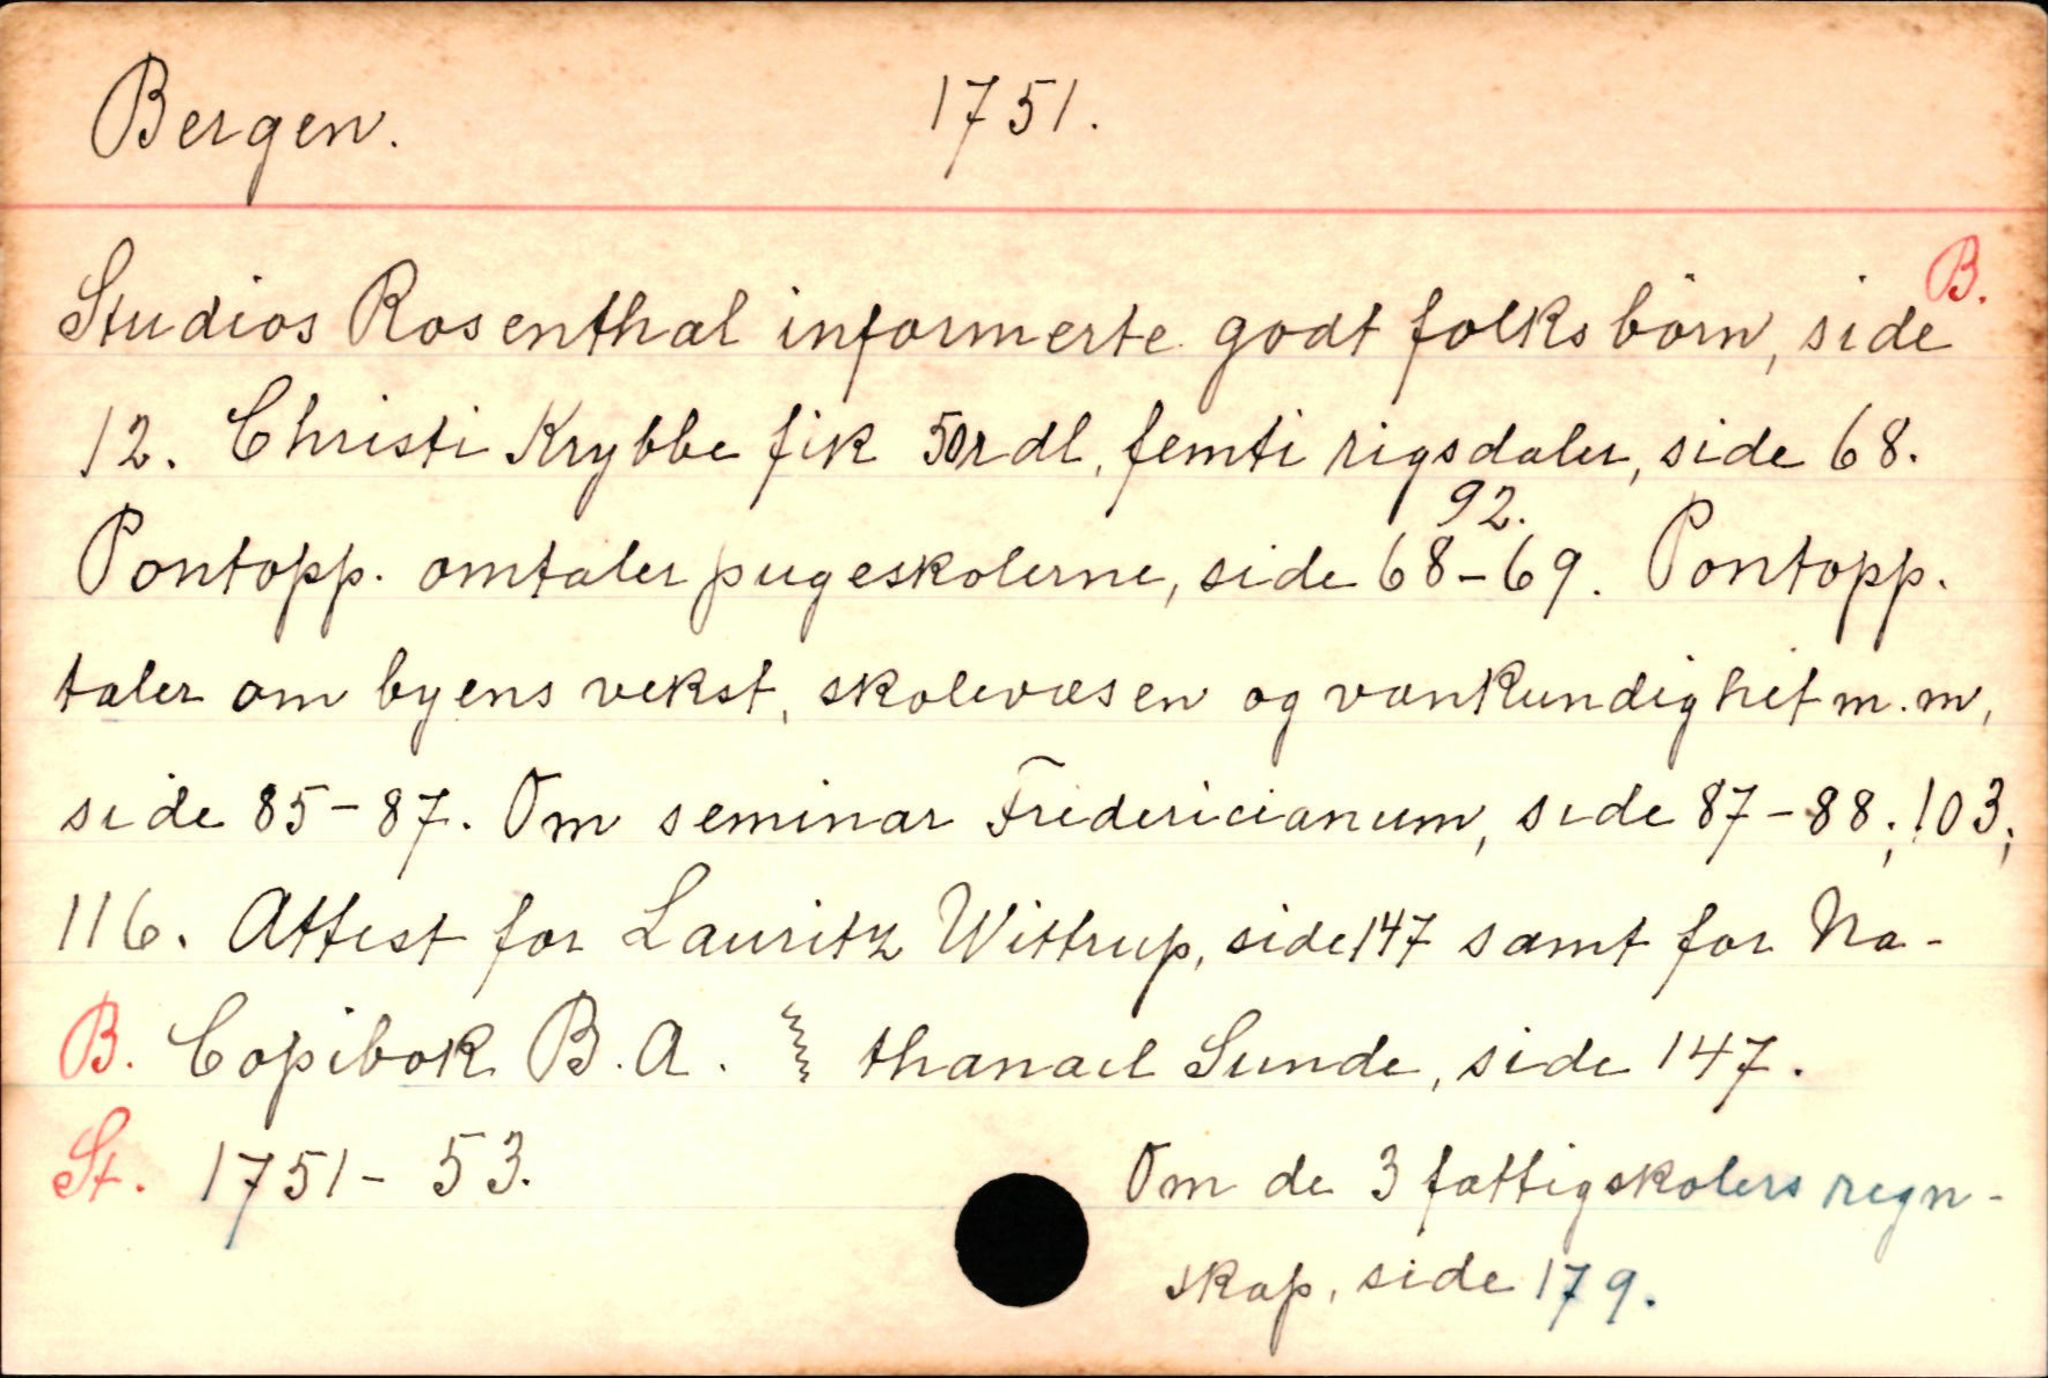 Bergen. 1751.
B.
Studios Rosenthal informerte godt folks börn, side
12. Christi Krybbe fik 50 rdl, femti rigsdaler, side 68.
92.
Pontopp. omtaler pugeskolerne, side 68-69. Pontopp.
taler om byens vekst, skolevæsen og vankundighet m.m,
side 85-87. Om seminar Fridericianum, side 87-88; 103;
116. Attest for Lauritz Wittrup, side 147 samt for Na-
B. Copibok B.A. thanael Sunde, side 147.
St. 1751-53. Om de 3 fattigskolers regn-
skap, side 179.